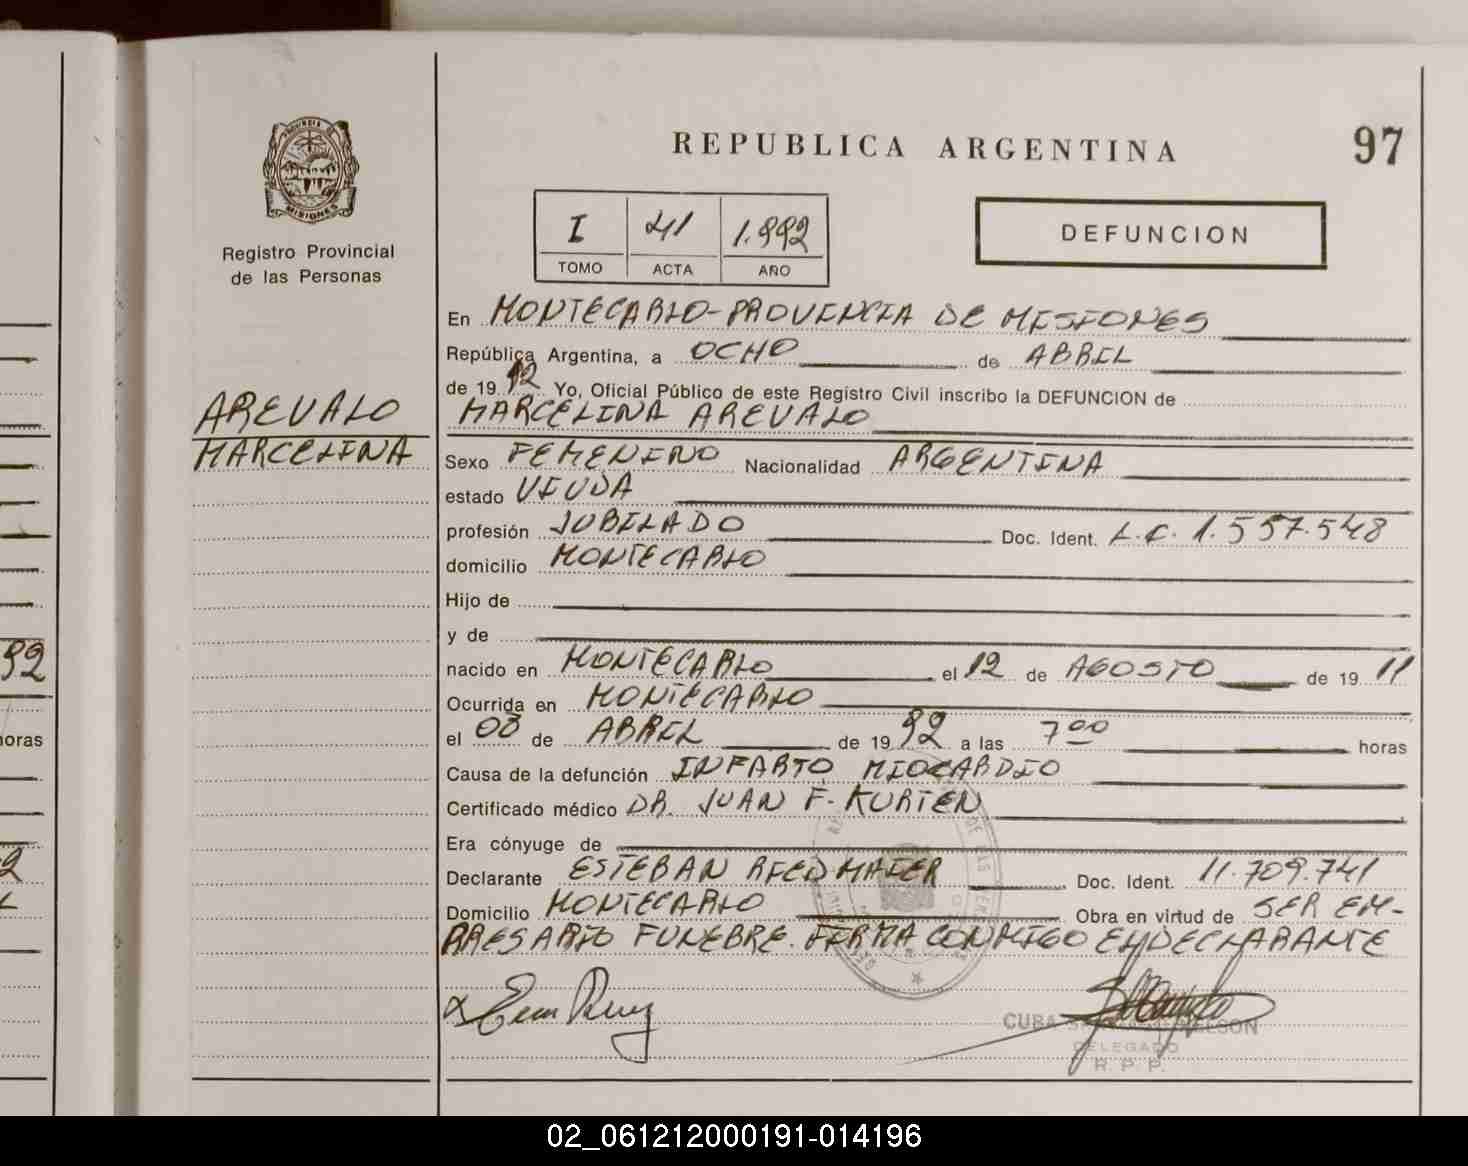 REPUBLICA ARGENTINA
97
PROVINCIA DE
MISIONES
Registro Provincial
de las Personas
I 41 1.992
TOMO ACTA AÑO
DEFUNCION
AREVALO
MARCELINA
En MONTECARLO-PROVINCIA DE MISIONES
República Argentina, a OCHO de ABRIL
de 19 92 Yo, Oficial Público de este Registro Civil inscribo la DEFUNCION de
MARCELINA AREVALO
Sexo FEMENINO Nacionalidad ARGENTINA
estado VIUDA
profesión JUBILADO Doc. Ident. L.C. 1.557.548
domicilio MONTECARLO
Hijo de
y de
nacido en MONTECARLO el 12 de AGOSTO de 19 11
Ocurrida en MONTECARLO
el 08 de ABRIL de 19 92 a las 7 00 horas
Causa de la defunción INFARTO MIOCARDIO
Certificado médico DR. JUAN F. KURTEN
Era cónyuge de
Declarante ESTEBAN RIEDMAIER Doc. Ident. 11.709.741
Domicilio MONTECARLO Obra en virtud de SER EM-
PRESARIO FUNEBRE. FIRMA CONMIGO EL DECLARANTE
CUBA NELSON
DELEGADO
R. P. P.
92
horas
2
02_061212000191-014196